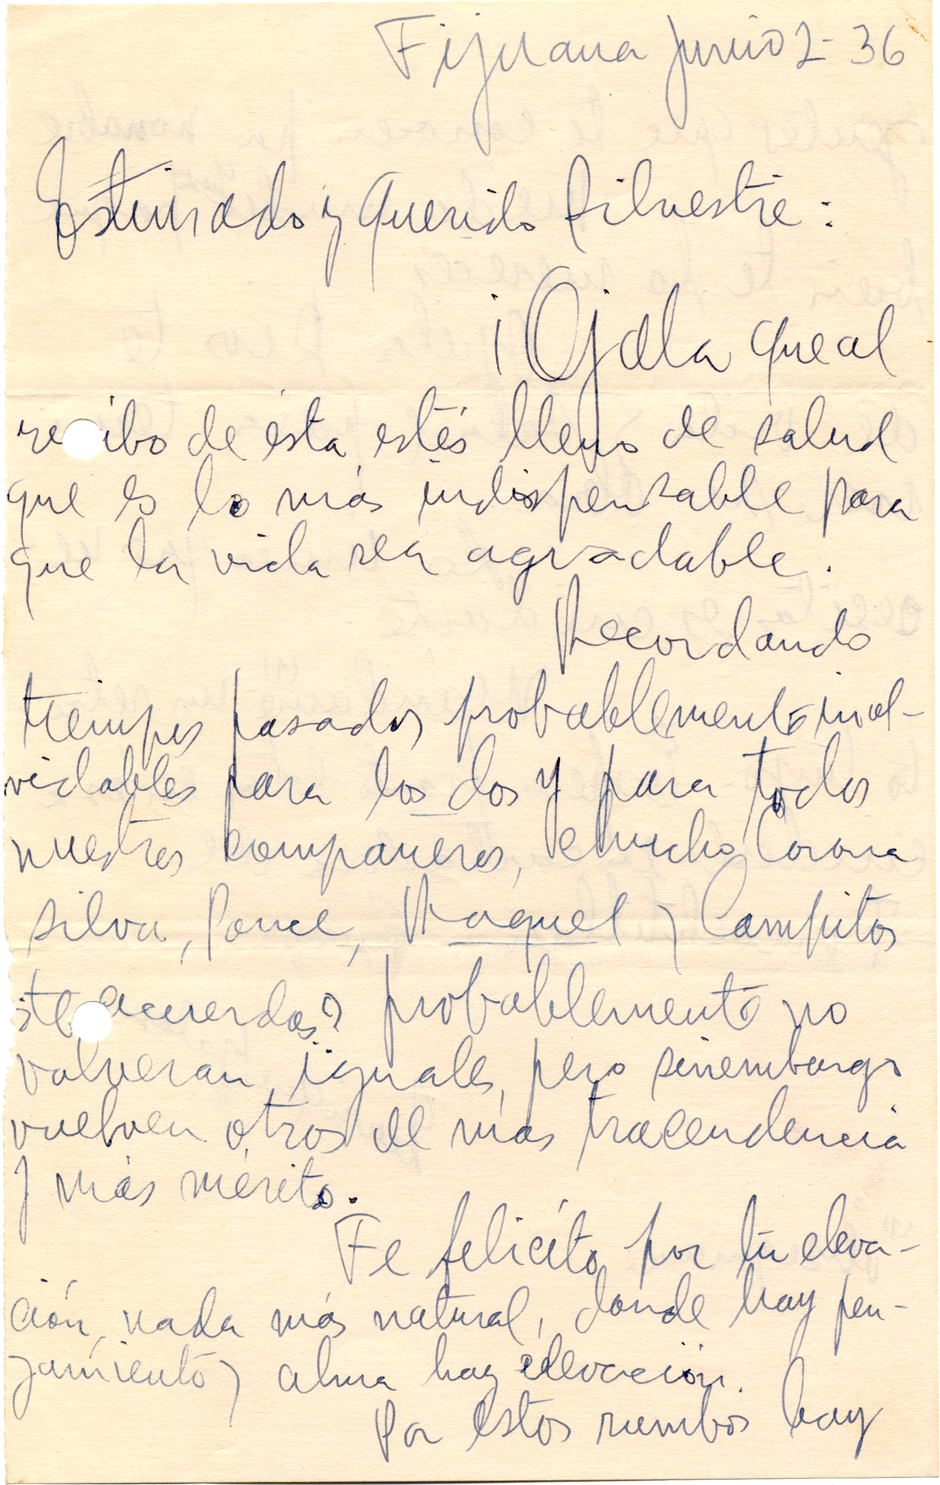 Tijuana Junio 2-36
Estimado y querido Silvestre:
¡Ojala que al
recibo de ésta estés lleno de salud
que es lo más indispensable para
que la vida sea agradable.
Recordando
tiempos pasados probablemente inol-
vidables para los dos y para todos
nuestros compañeros, el mucho Corona
Silva, Ponce, Raquel y Campitos
¿te acuerdas? probablemente no
volveran iguales, pero sinembargo
vuelven otros de más tracendencia
y más mérito.
Te felicito por tu eleva-
ción, nada más natural, donde hay pen-
zamiento y alma hay elevación.
Por estos rumbos hay